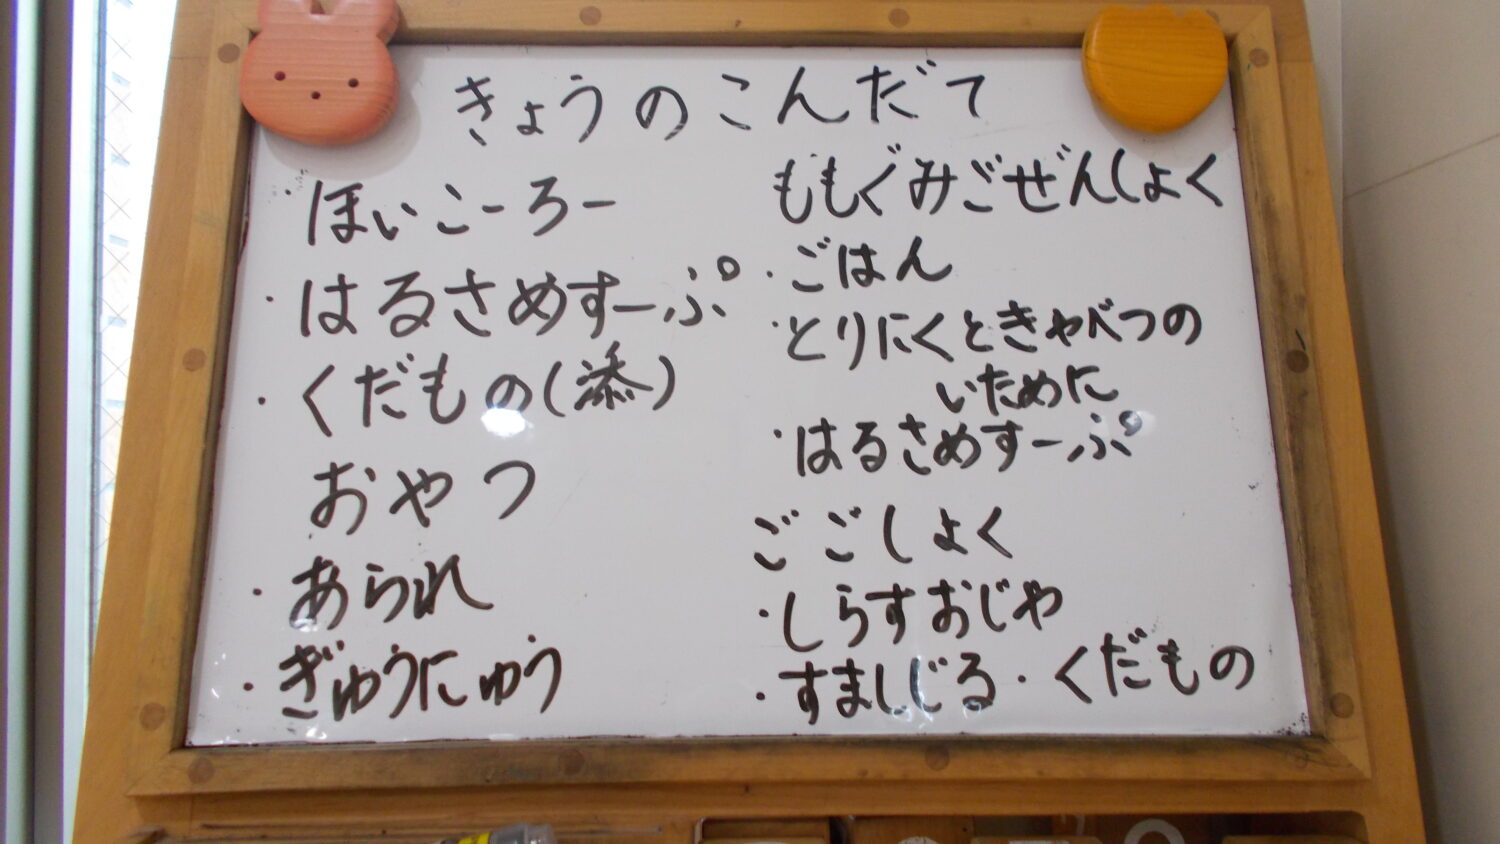 きょうのこんだて
・ほいこーろー
・はるさめすーぷ
・くだもの(添)
おやつ
・あられ
・ぎゅうにゅう
ももぐみごぜんしょく
・ごはん
・とりにくときゃべつの
いために
・はるさめすーぷ
ごごしょく
・しらすおじや
・すましじる・くだもの